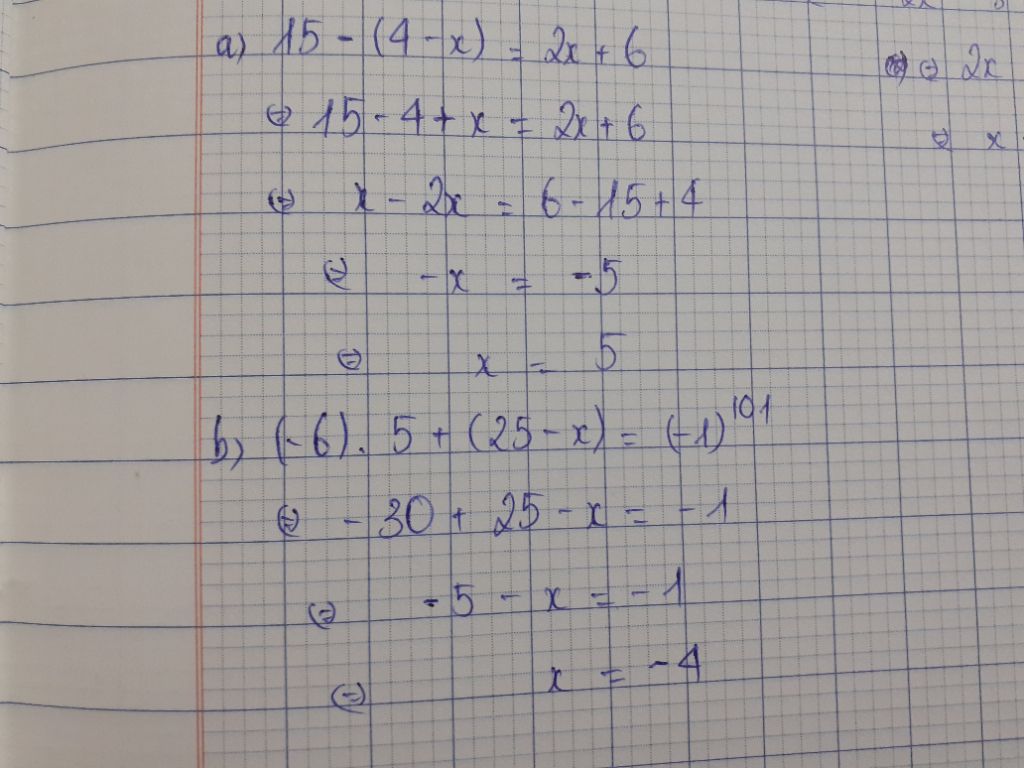 a) 15 - (4 - x) = 2x + 6
⇔ 15 - 4 + x = 2x + 6
⇔ x - 2x = 6 - 15 + 4
⇔ - x = - 5
⇔ x = 5
b) (- 6) . 5 + (25 - x) = (-1)^101
⇔ - 30 + 25 - x = - 1
⇔ - 5 - x = - 1
⇔ x = - 4
⇔ 2x
⇔ x